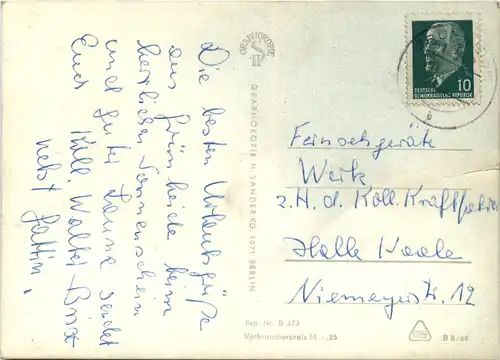 Die besten Urlaubsgrüße
aus Grünheide beim
herrlichen Sonnenschein
und gute Laune sendet
Euch
Koll. Walter
nebst Gattin.
GRAPHOKOPIE
GRAPHOKOPIE H. SANDER KG. 1071 BERLIN
10
DEUTSCHE
DEMOKRATISCHE REPUBLIK
Fernsehgeräte
Werk
z.H.d. Koll. Kraftfahrer
Halle Saale
Niemeyerstr. 12
Best.-Nr. B 673
Verbraucherpreis M -,25
B 8/69